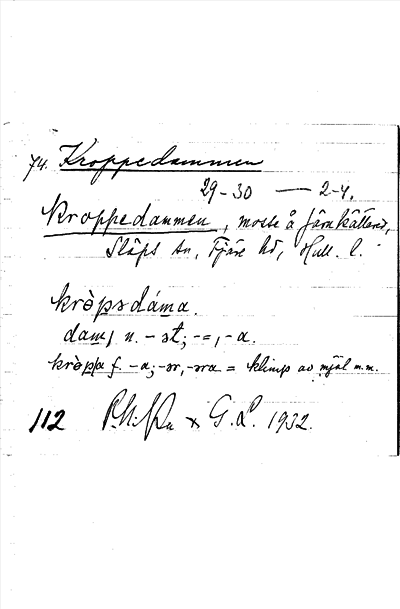 74. Kroppedammen
29-30 — 2-4.
Kroppedammen, mosse å Järnkättered,
Släps sn, Fjäre hd, Hall. l.
kròpədáma.
dam, n. -ət; -=, -a.
kròp/a f. -a; -ər, -əra = klimp av mjöl m.m.
112 & G. L. 1932.